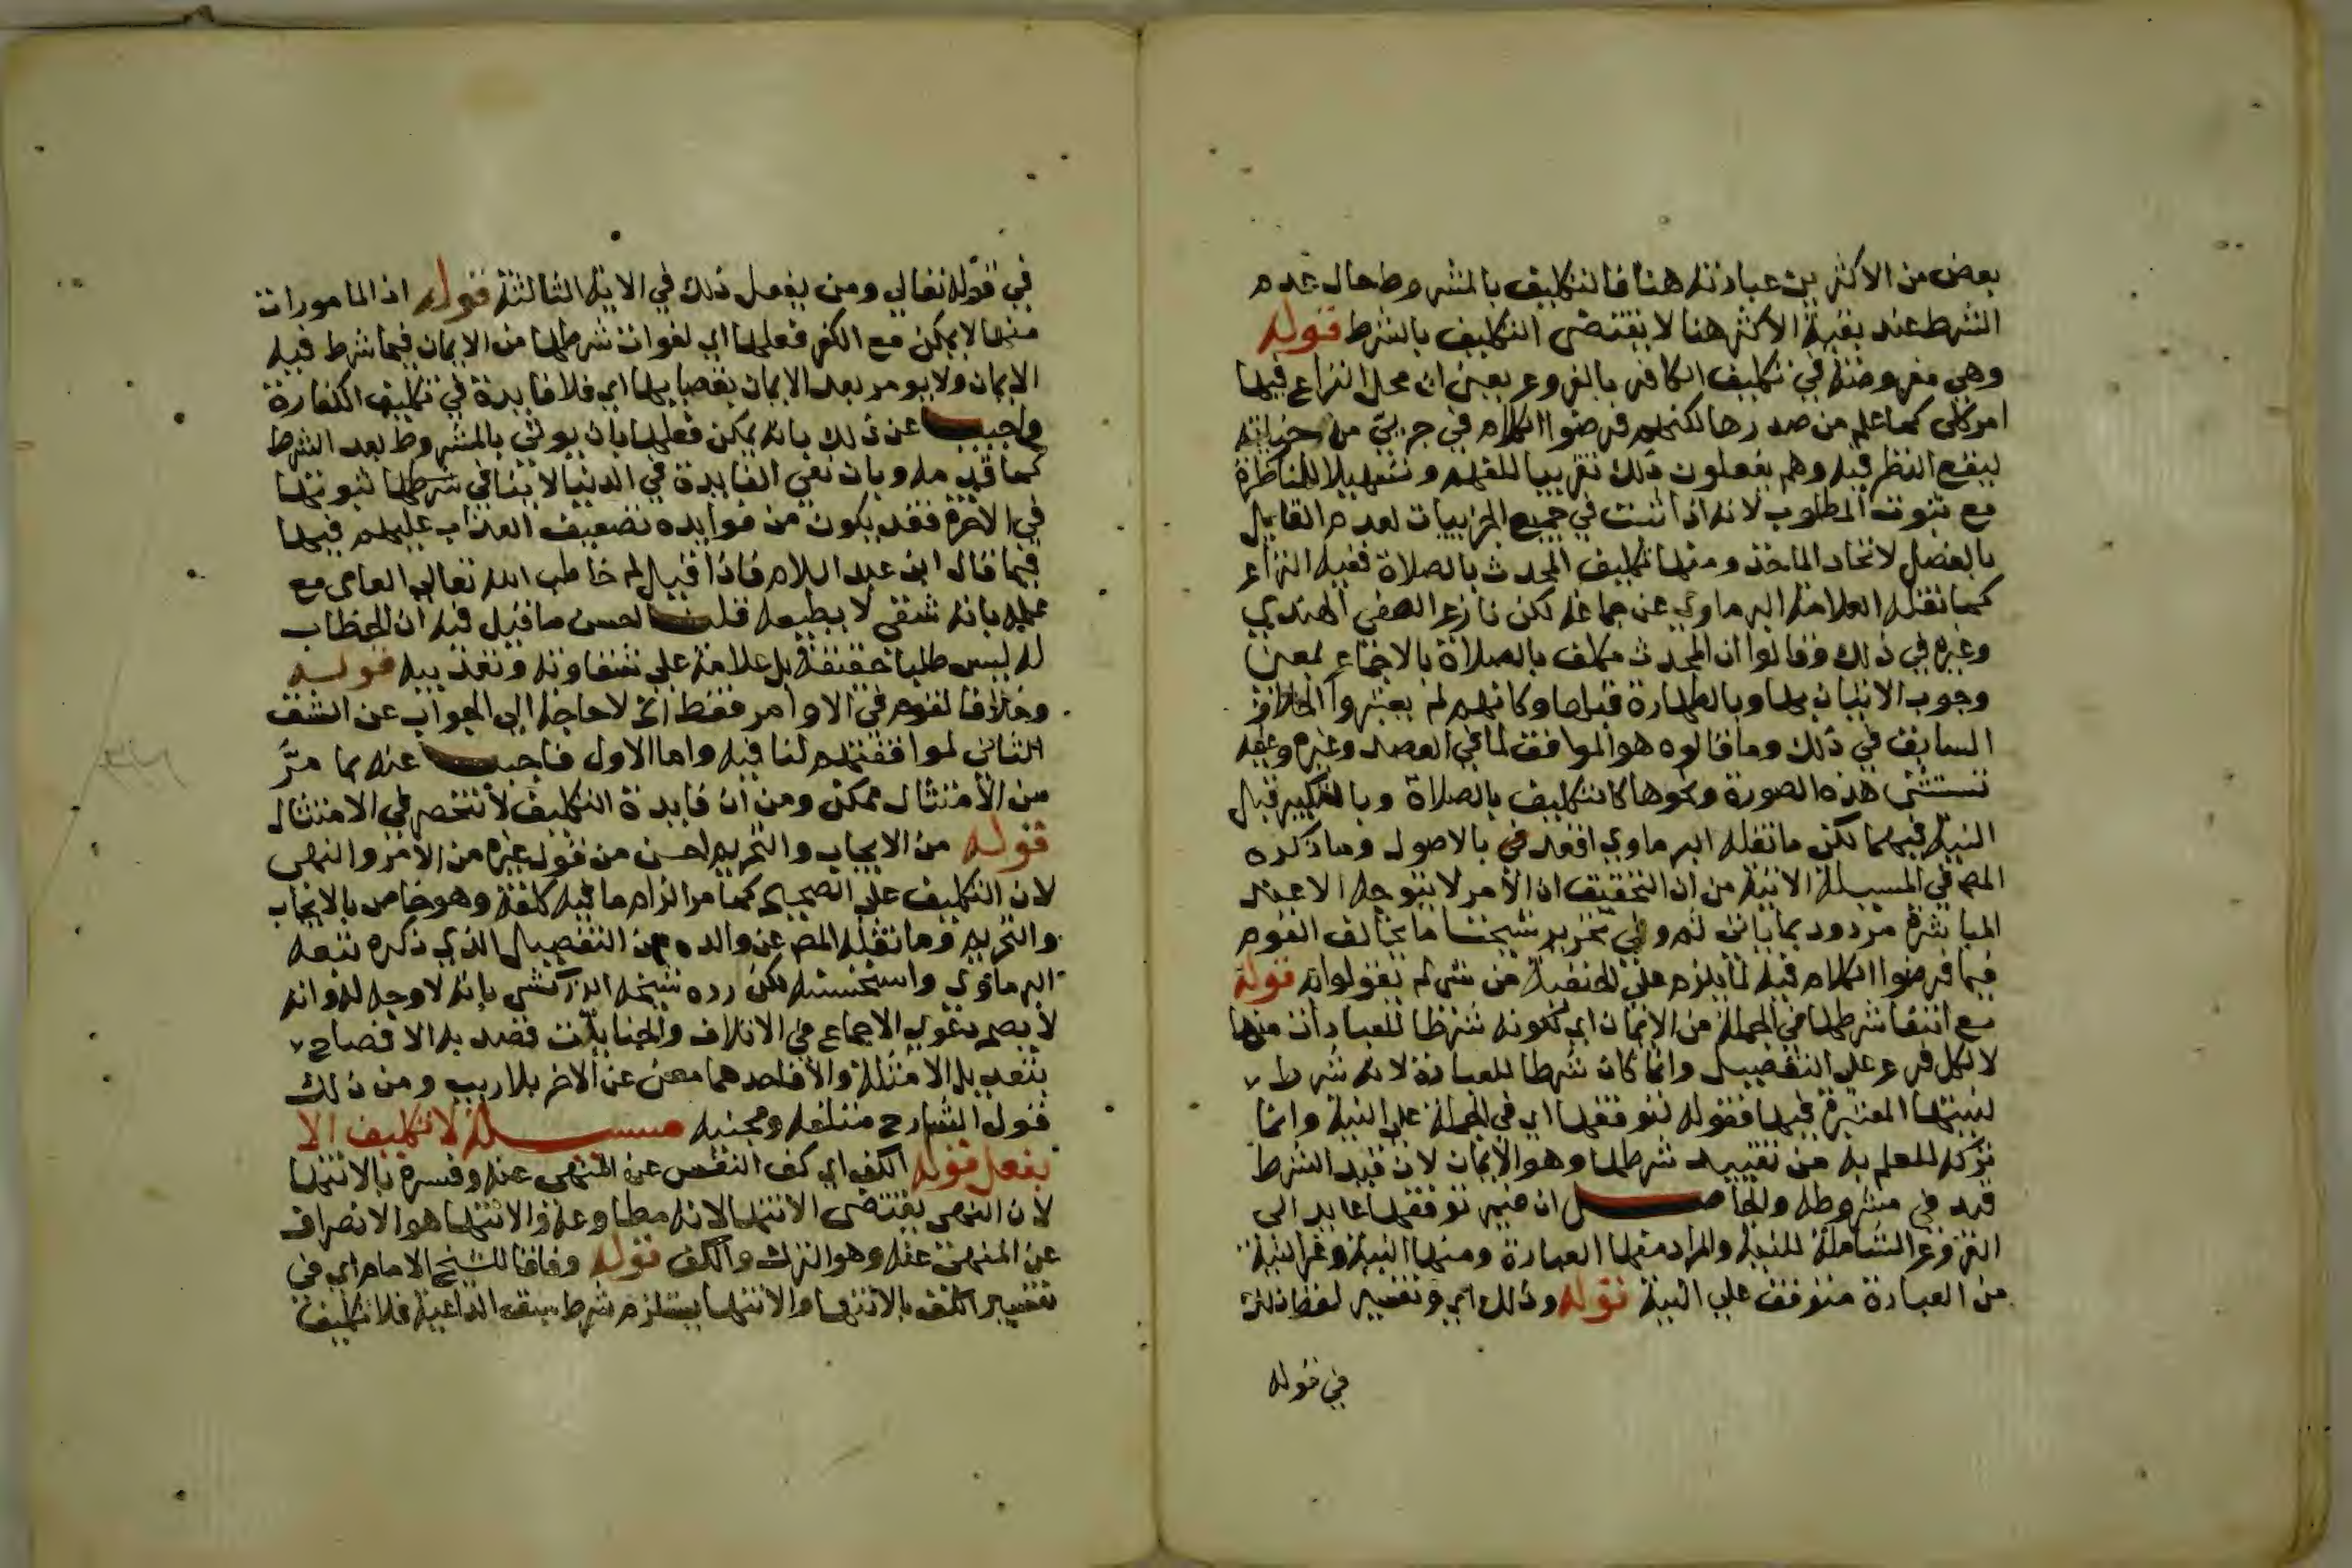 بعض من الاكثرين عبارته هنا فالتكليف بالمشروط حال عدم
الشرط عند بقية الاكثر هنا لا يقتضى التكليف بالشرط قوله
وهي مفروضة في تكليف الكافر بالفروع يعني ان محل النزاع فيها
امر كلى كما علم من صدرها لكنهم فرضوا الكلام في جزئي من جزئياته
ليقع النظر فيه وهم يفعلون ذلك تقريبا للفهم وتسهيلا للمناظرة
مع ثبوت المطلوب لانه اذا ثبت في جميع الجزييات لعدم القايل
بالفصل لاتحاد الماخذ ومنها تكليف المحدث بالصلاة ففيه النزاع
كما نقله العلامة البرماوي عن جماعة لكن نازع الصفي الهندي
وغيره في ذلك وقالوا ان المحدث مكلف بالصلاة بالاجماع بمعنى
وجوب الاتيان بها وبالطهارة قبلها وكانهم لم يعتبروا الخلاف
السابق في ذلك وما قالوه هو الموافق لما في العضد وغيره وعليه
تستثنى هذه الصورة ونحوها كالتكليف بالصلاة وبالتكبير قبل
النية فيهما لكن ما نقله البرماوي اقعد بالاصول وما ذكره
المص في المسيلة الاتية من ان التحقيق ان الامر لا يتوجه الا عند
المباشرة مردود بما ياتى ثم وفي تحرير شيخنا ما يخالف القوم
فيما فرضوا الكلام فيه لما يلزم على الحنفية من شى لم يقولوا به قوله
مع انتفا شرطها في الجملة من الايمان اي لكونه شرطا للعبادات منها
لا لكل فرع على التفصيل وانما كان شرطا للعبادة لانه شرط
لنيتها المعتبرة فيها فقوله لتوقفها اي في الجملة على النية وانما
تركه للعلم به من تقييد شرطها وهو الايمان لان قيد الشرط
قيد في مشروطه والحاصل ان ضمير توقفها عايد الى
الفروع الشاملة للنية والمراد منها العبادة ومنها النية وغير النية
من العبادة متوقف على النية قوله وذلك اي وتفسير لفظ ذلك
في قوله
في قوله تعالى ومن يفعل ذلك في الاية الثالثة قوله اذ المامورات
منها لا يمكن مع الكفر فعلها اي لفوات شرطها من الايمان فيما شرط فيه
الايمان ولا يومر بعد الايمان بقضايها اي فلا فايدة في تكليف الكفار
واجيب عن ذلك بانه يمكن فعلها بان يوتى بالمشروط بعد الشرط
كما قدمه وبان نفي الفايدة في الدنيا لا ينافي شرطها لثبوتها
في الاخرة فقد يكون من فوايده تضعيف العذاب عليهم فيها
فيما قال ابن عبد السلام فاذا قيل لم خاطب الله تعالى العاصى مع
علمه بانه شقي لا يطيعه قلت احسن ما قيل فيه ان الخطاب
له ليس طلبا حقيقة بل علامة على شقاوته وتعذيبه قوله
وخلافا لقوم في الاوامر فقط اي لا حاجة الى الجواب عن الشق
الثاني لموافقتهم لنا فيه واما الاول فاجيب عنه بما مرّ
من ان الامتثال ممكن ومن ان فايدة التكليف لا تنحصر في الامتثال
قوله من الايجاب والتحريم احسن من قول غيره من الامر والنهى
لان التكليف على الصحيح كما مر الزام ما فيه كلفة وهو خاص بالايجاب
والتحريم وما نقله المص عن والده من التفصيل الذي ذكره تبعه
البرماوي واستحسنه لكن رده شيخه الزركشي بانه لا وجه له وانه
لا يصح دعوى الاجماع في الاتلاف والجنايات قصد به الافصاح
بتعدد الامثلة والا فاحدهما مغن عن الاخر بلا ريب ومن ذلك
قول الشارح متلفه ومجنيه مسيلة لا تكليف الا
بفعل قوله الكف اي كف النفس عن المنهى عنه وفسره بالانتها
لان النهى يقتضى الانتها لانه مطاوعه والانتها هو الانصراف
عن المنهى عنه وهو الترك والكف قوله وفاقا للشيخ الامام اي في
تفسير الكف بالانتها والانتها يستلزم شرط سبق الداعية فلا تكليف